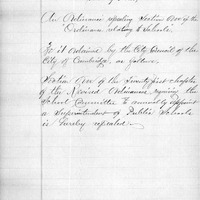 An Ordinance repealing Section One of the
Ordinance relating to Schools.
Be it ordained by the City Council of the
City of Cambridge, as follows.
Section One of the Twenty first chapter
of the Revised Ordinances requiring the
School Committee to annually appoint
a Superintendent of Public Schools
is hereby repealed.